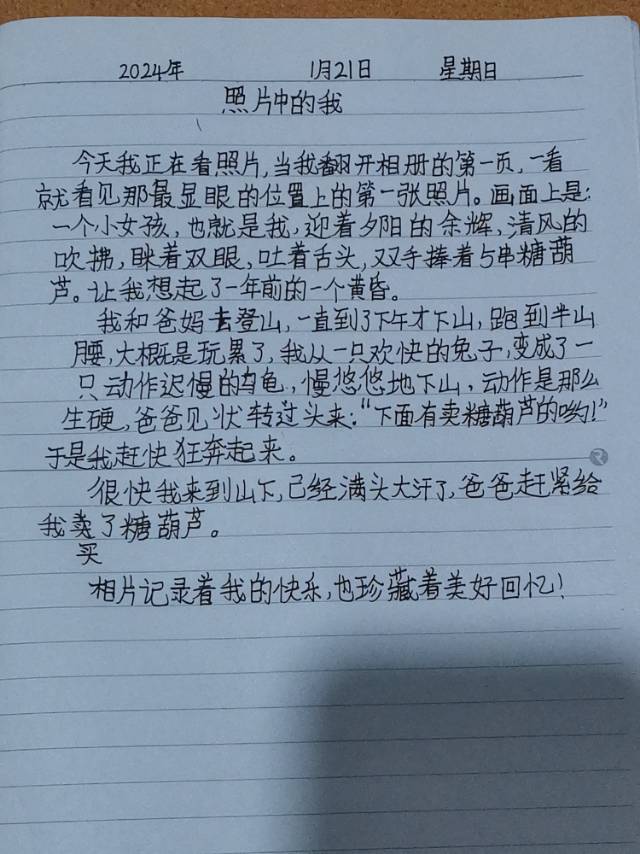 2024年 1月21日 星期日
照片中的我
今天我正在看照片,当我翻开相册的第一页,一看
就看见那最显眼的位置上的第一张照片。画面上是:
一个小女孩,也就是我,迎着夕阳的余辉,清风的
吹拂,眯着双眼,吐着舌头,双手捧着与串糖葫
芦。让我想起了一年前的一个黄昏。
我和爸妈去登山,一直到了下午才下山,跑到半山
腰,大概是玩累了,我从一只欢快的兔子,变成了一
只动作迟慢的乌龟,慢悠悠地下山,动作是那么
生硬,爸爸见状转过头来:“下面有卖糖葫芦的哟!”
于是我赶快狂奔起来。
很快我来到山下,已经满头大汗了,爸爸赶紧给
我卖了糖葫芦。
买
相片记录着我的快乐,也珍藏着美好回忆!